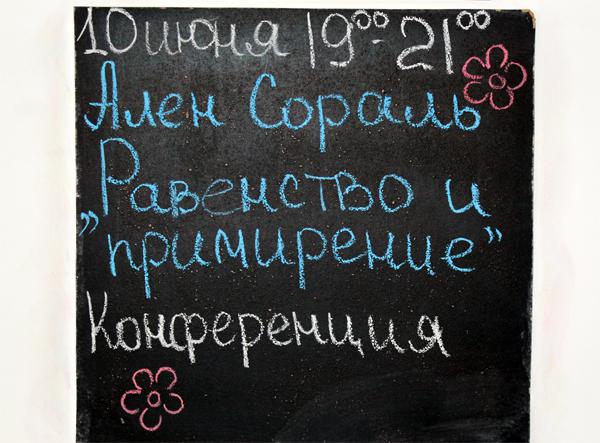 10 июня 19⁰⁰-21⁰⁰
Ален Сораль
„Равенство и
"примирение"
Конференция